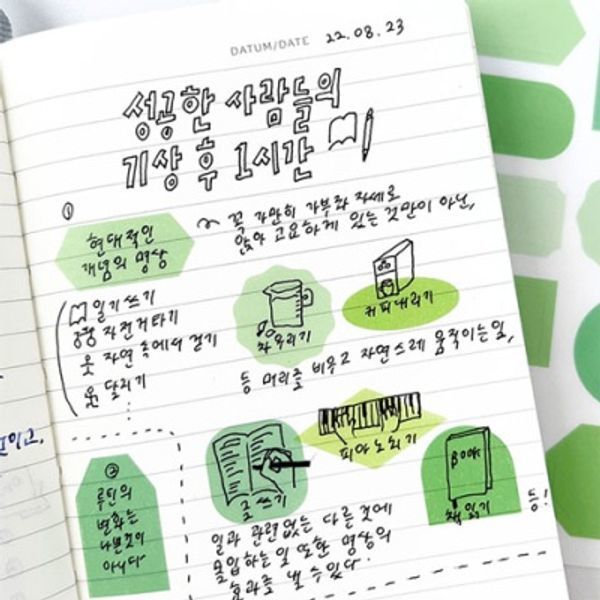 DATUM/DATE 22.08.23
성공한 사람들의
기상 후 1시간
①
현대적인
개념의 명상
~ 꼭 가만히 가부좌 자세로
앉아 고요하게 있는 것만이 아닌,
일기 쓰기
자전거 타기
자연 속에서 걷기
달리기
차 우리기
커피 내리기
등 머리를 비우고 자연스레 움직이는 일,
글 쓰기
피아노 치기
BOOK
책 읽기
등!
일과 관련 없는 다른 것에
몰입하는 일 또한 명상의
효과를 낼 수 있다.
②
루틴의
변화는
나쁜 것이
아니다